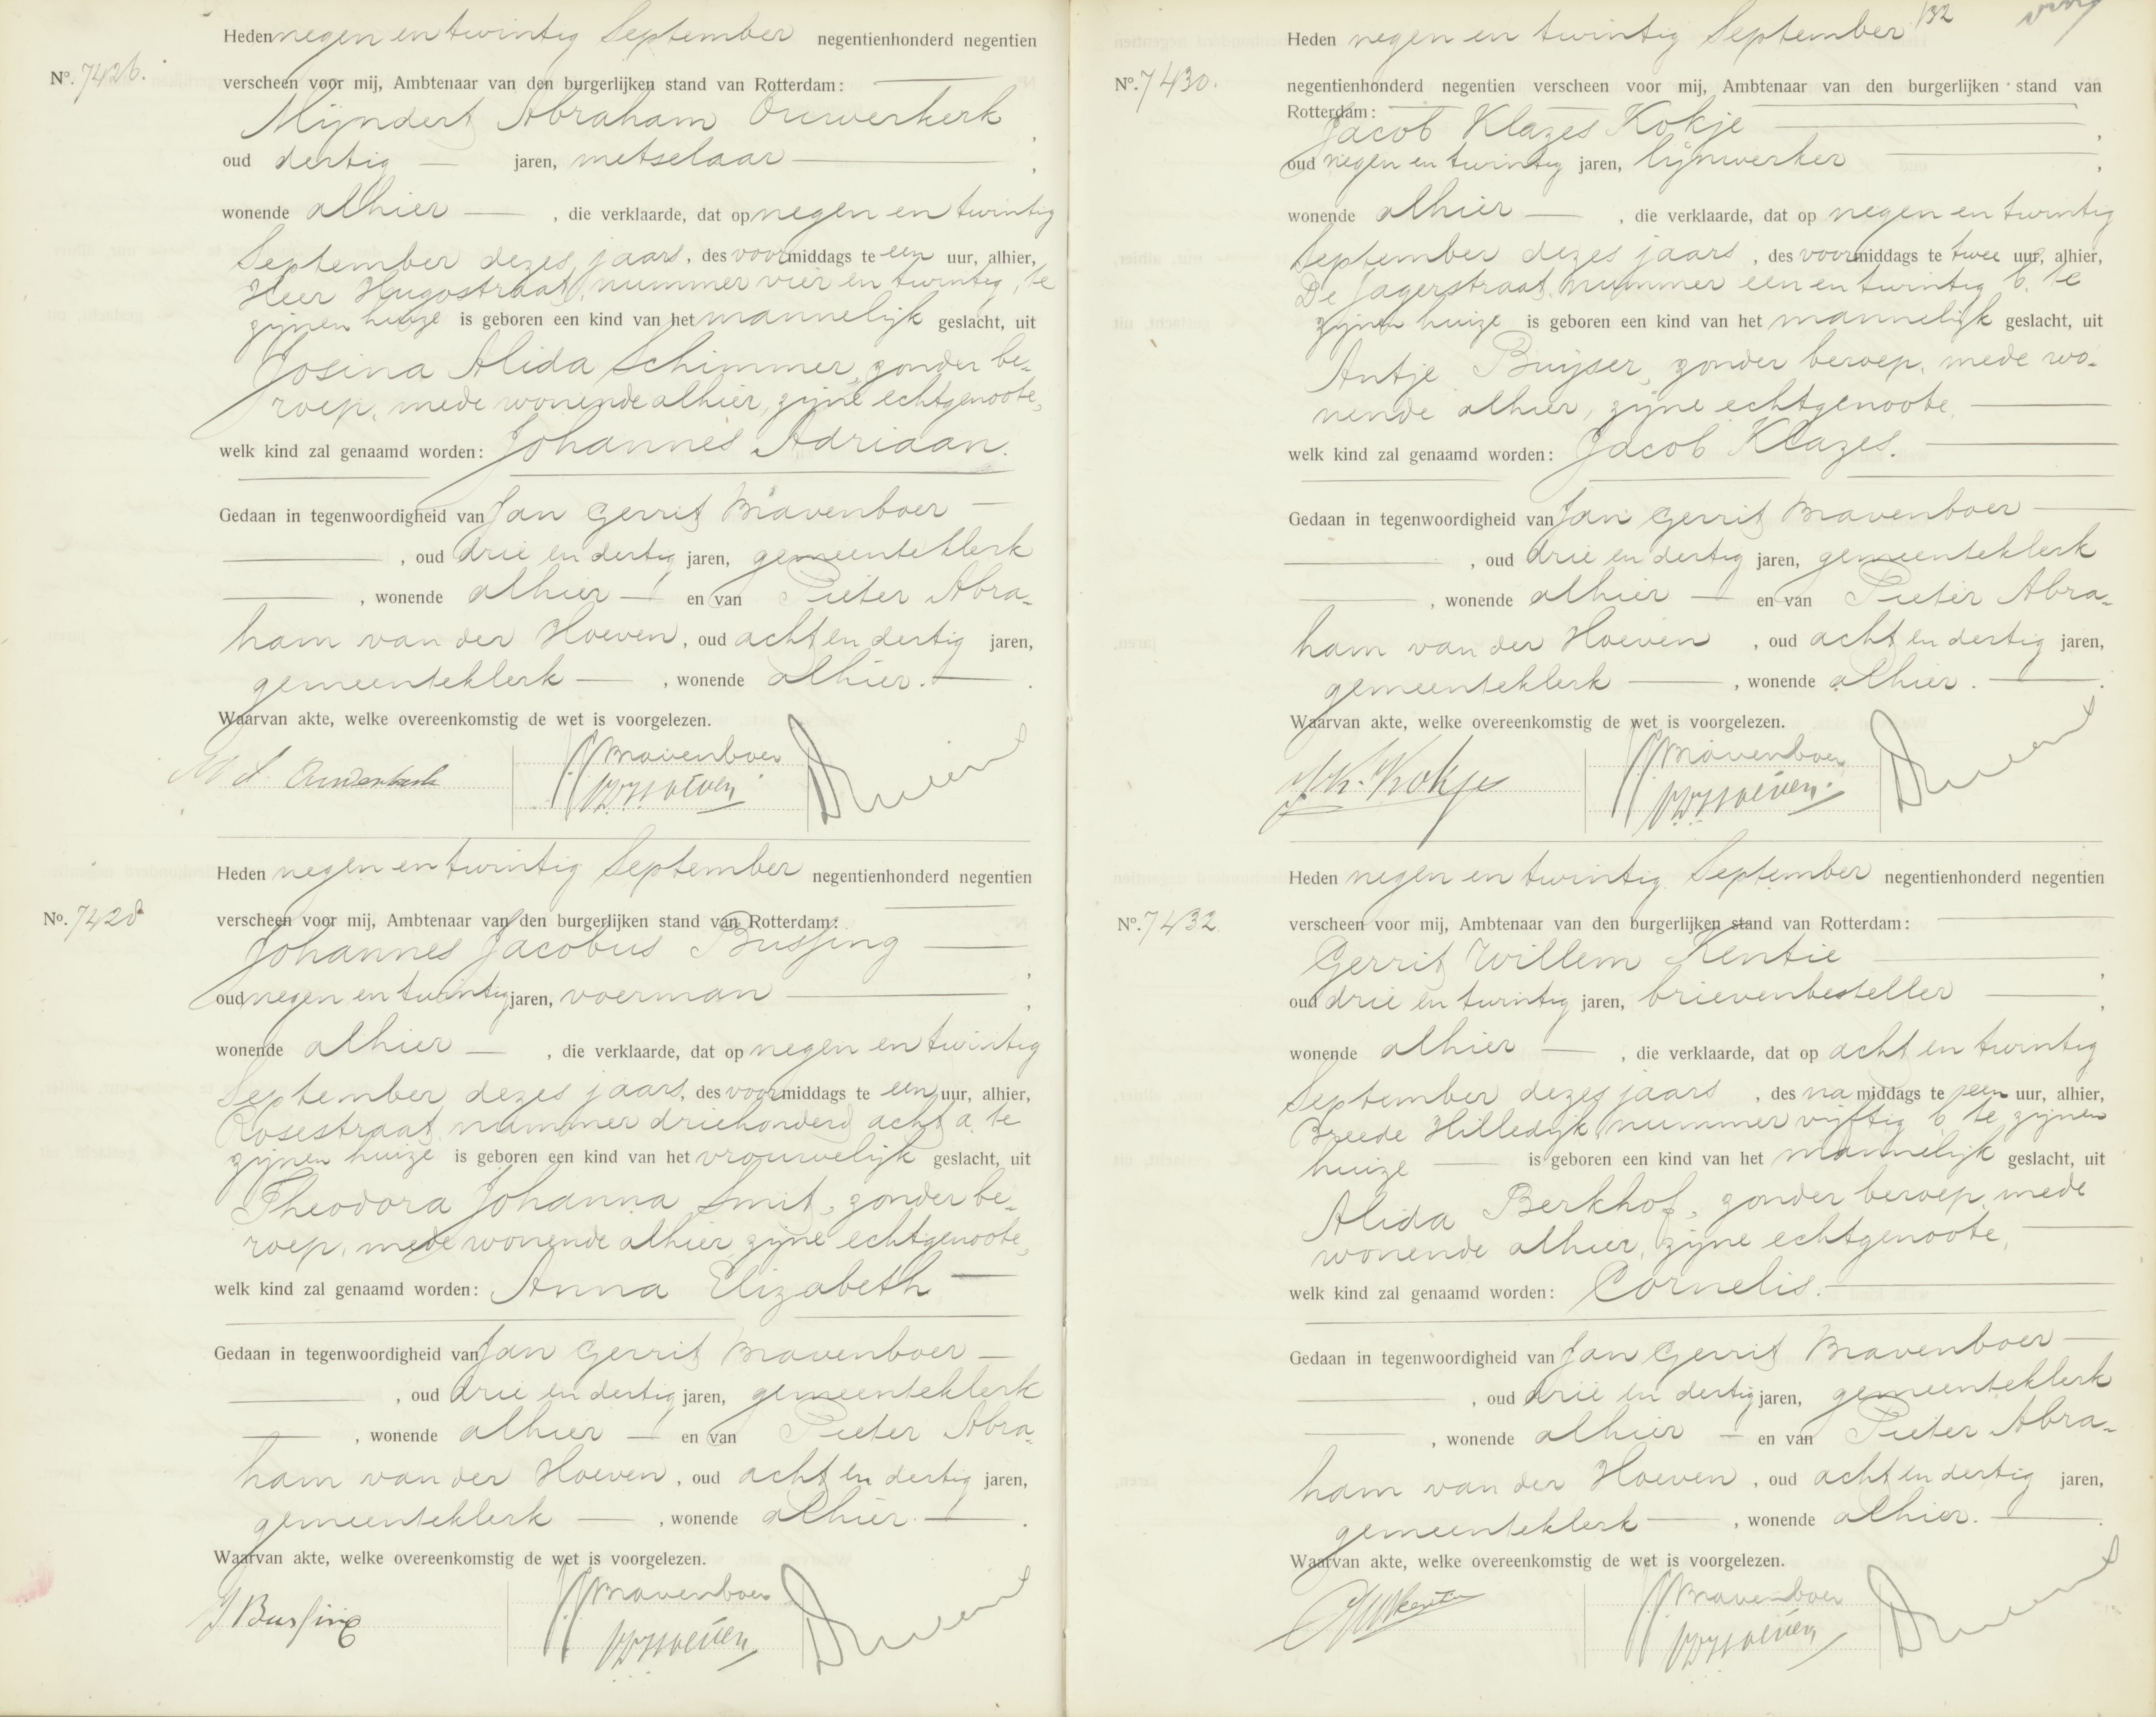 Heden negen en twintig September negentienhonderd negentien
No. 7426. verscheen voor mij, Ambtenaar van den burgerlijken stand van Rotterdam:
Mijndert Abraham Ouwerkerk
oud dertig jaren, metselaar
wonende alhier, die verklaarde, dat op negen en twintig
September dezes jaars, des voormiddags te een uur, alhier,
Heer Hugostraat, nummer vier en twintig, te
zijnen huize is geboren een kind van het mannelijk geslacht, uit
Josina Alida Schimmer, zonder be-
roep, mede wonende alhier, zijne echtgenoote,
welk kind zal genaamd worden: Johannes Adriaan.
Gedaan in tegenwoordigheid van Jan Gerrit Mavenboer
, oud drie en dertig jaren, gemeenteklerk
, wonende alhier en van Pieter Abra-
ham van der Hoeven, oud acht en dertig jaren,
gemeenteklerk, wonende alhier.
Waarvan akte, welke overeenkomstig de wet is voorgelezen.
Mavenboer
Heden negen en twintig September negentienhonderd negentien
No. 7428 verscheen voor mij, Ambtenaar van den burgerlijken stand van Rotterdam:
Johannes Jacobus Bussing
oud negen en twintig jaren, voerman
wonende alhier, die verklaarde, dat op negen en twintig
September dezes jaars, des voormiddags te een uur, alhier,
Rosestraat nummer driehonderd acht a, te
zijnen huize is geboren een kind van het vrouwelijk geslacht, uit
Theodora Johanna Smit, zonder be-
roep, mede wonende alhier, zijne echtgenoote,
welk kind zal genaamd worden: Anna Elizabeth
Gedaan in tegenwoordigheid van Jan Gerrit Mavenboer
, oud drie en dertig jaren, gemeenteklerk
, wonende alhier en van Pieter Abra-
ham van der Hoeven, oud acht en dertig jaren,
gemeenteklerk, wonende alhier.
Waarvan akte, welke overeenkomstig de wet is voorgelezen.
J Bussing Mavenboer
132
Heden negen en twintig September
No. 7430. negentienhonderd negentien verscheen voor mij, Ambtenaar van den burgerlijken stand van
Rotterdam:
Jacob Klazes Kokje
oud negen en twintig jaren, lijnwerker
wonende alhier, die verklaarde, dat op negen en twintig
September dezes jaars, des voormiddags te twee uur, alhier,
De Jagerstraat, nummer een en twintig b, te
zijnen huize is geboren een kind van het mannelijk geslacht, uit
Antje Buijser, zonder beroep, mede wo-
nende alhier, zijne echtgenoote,
welk kind zal genaamd worden: Jacob Klazes.
Gedaan in tegenwoordigheid van Jan Gerrit Mavenboer
, oud drie en dertig jaren, gemeenteklerk
, wonende alhier en van Pieter Abra-
ham van der Hoeven, oud acht en dertig jaren,
gemeenteklerk, wonende alhier.
Waarvan akte, welke overeenkomstig de wet is voorgelezen.
J. K. Kokje Mavenboer
Heden negen en twintig September negentienhonderd negentien
No. 7432 verscheen voor mij, Ambtenaar van den burgerlijken stand van Rotterdam:
Gerrit Willem Kentie
oud drie en twintig jaren, brievenbesteller
wonende alhier, die verklaarde, dat op acht en twintig
September dezes jaars, des namiddags te een uur, alhier,
Breede Hilledijk, nummer vijftig b, te zijnen
huize is geboren een kind van het mannelijk geslacht, uit
Alida Berkhof, zonder beroep, mede
wonende alhier, zijne echtgenoote,
welk kind zal genaamd worden: Cornelis.
Gedaan in tegenwoordigheid van Jan Gerrit Mavenboer
, oud drie en dertig jaren, gemeenteklerk
, wonende alhier en van Pieter Abra-
ham van der Hoeven, oud acht en dertig jaren,
gemeenteklerk, wonende alhier.
Waarvan akte, welke overeenkomstig de wet is voorgelezen.
Mavenboer